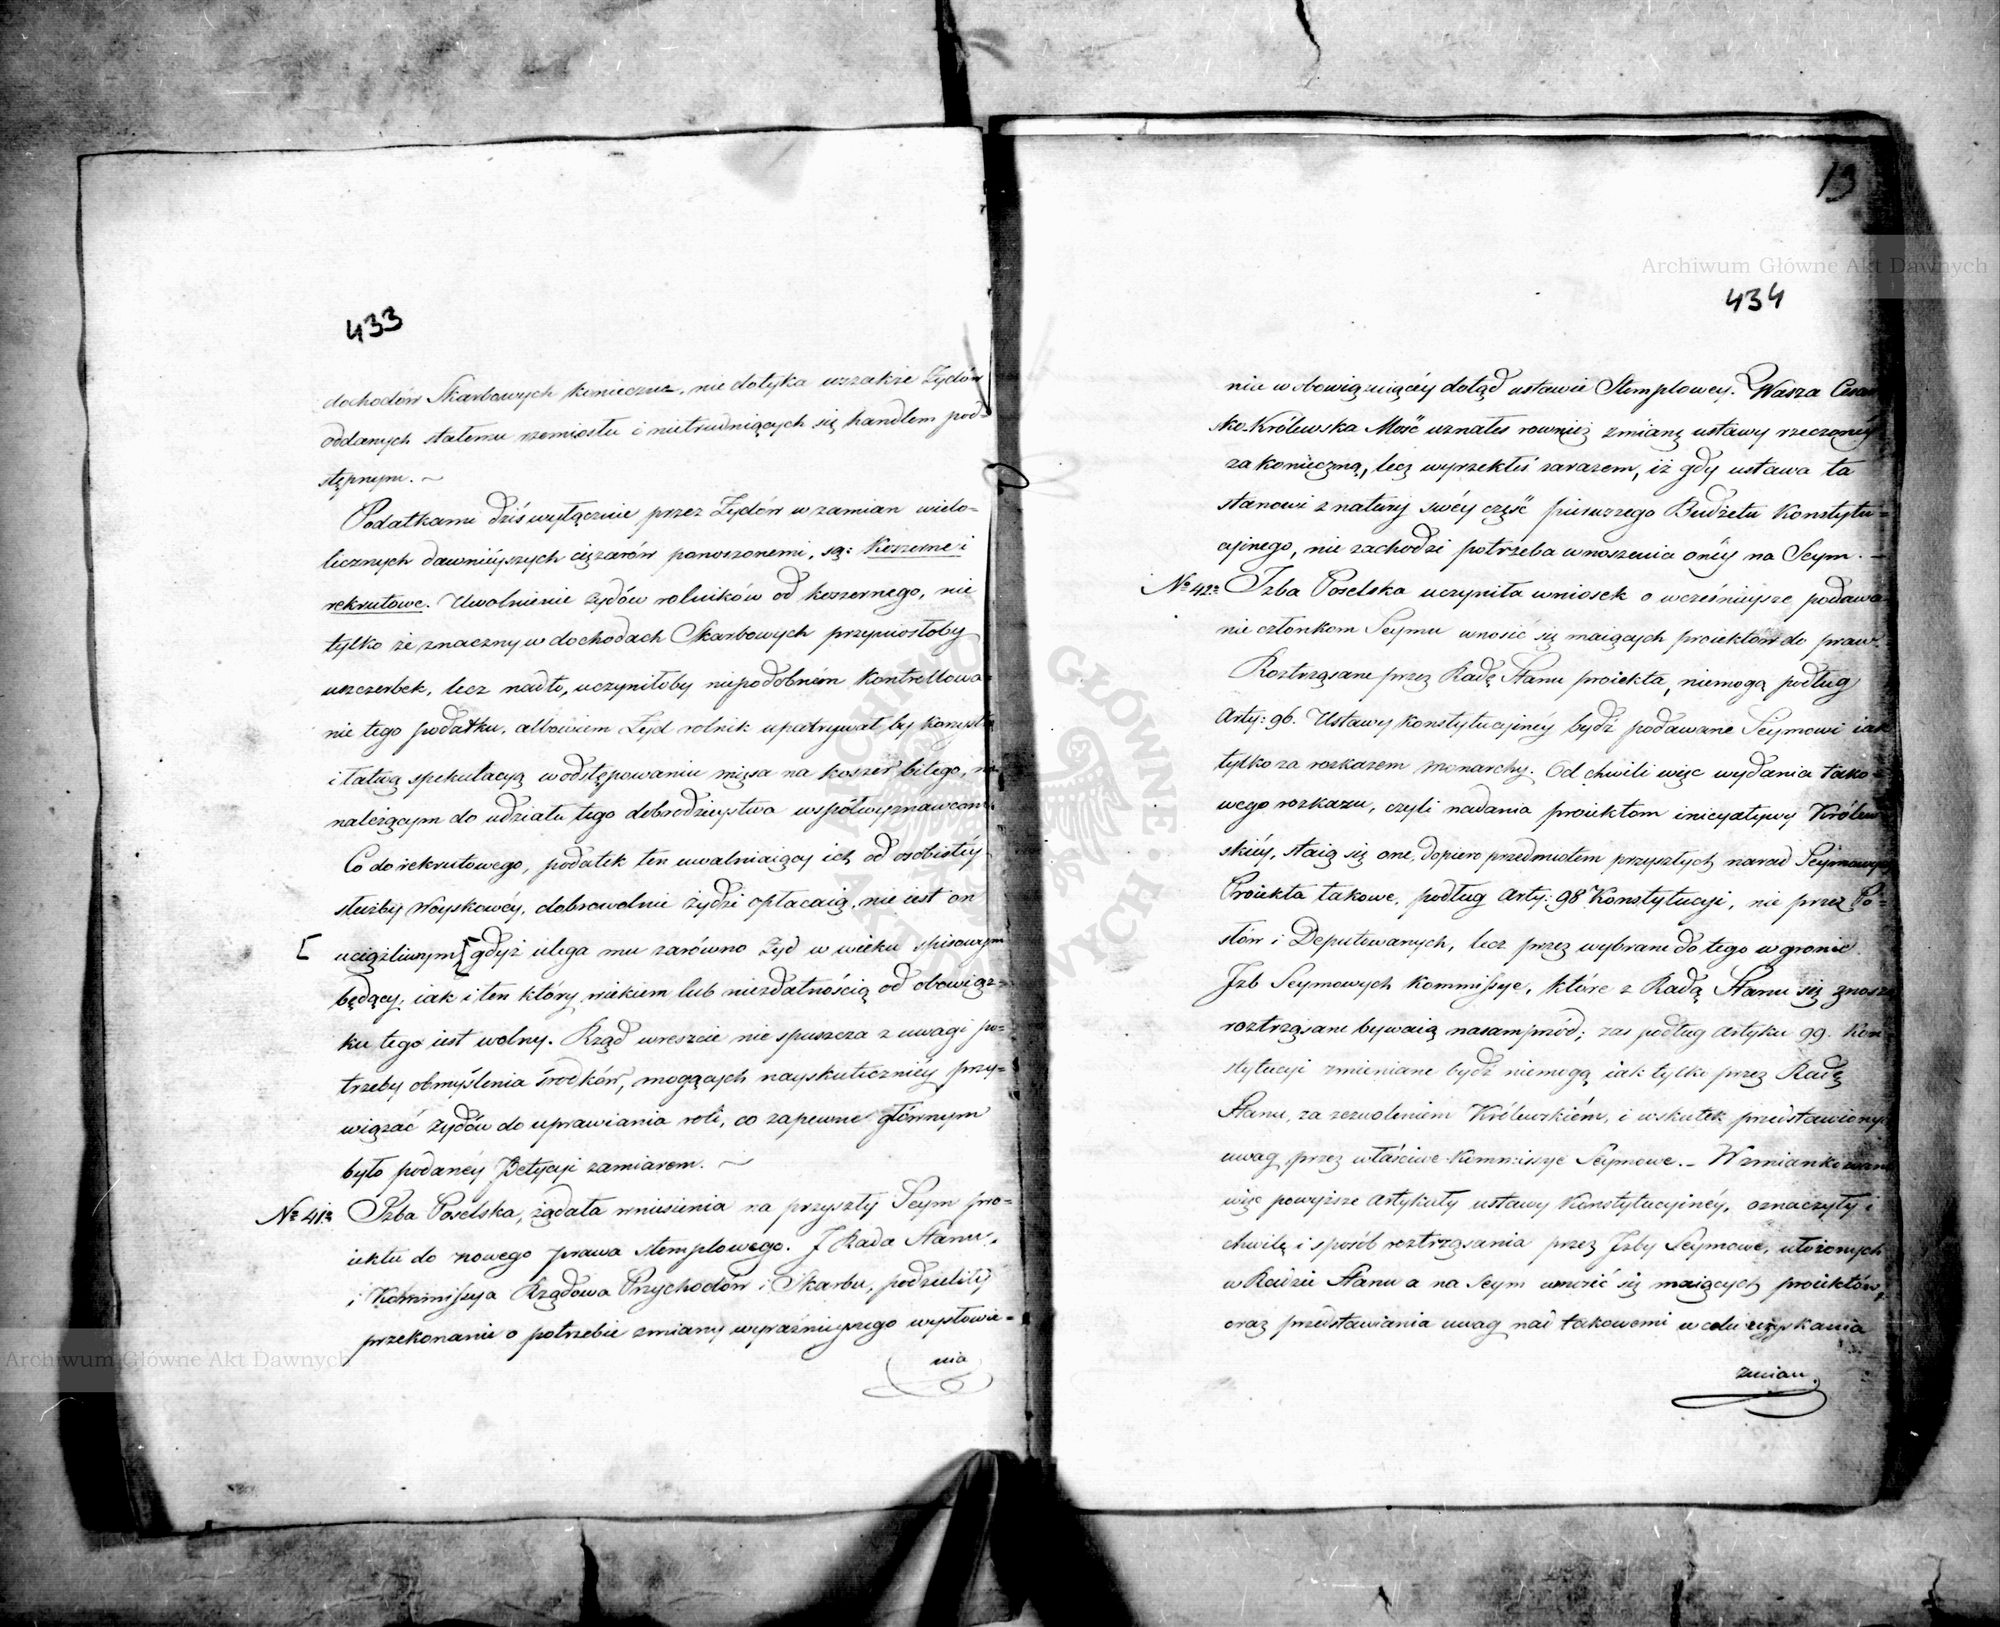 433
dochodów Skarbowych konieczne, nie dotyka wszakże Żydów
oddanych stałemu rzemiosłu i nietrudniących się handlem pod-
stępnym. ~
Podatkami dziś wyłącznie przez Żydów w zamian wielo-
licznych dawnieyszych ciężarów ponoszonemi, są: Koszerne i
rekrutowe. Uwolnienie żydów rolników od koszernego, nie
tylko że znaczny w dochodach Skarbowych przyniosłoby
uszczerbek, lecz nadto, uczyniłoby niepodobném kontrollowa-
nie tego podatku, albowiem Żyd rolnik upatrywał by korzyść
i łatwą spekulacyą w odstępowaniu mięsa na koszer bitego, nie
należącym do udziału tego dobrodzieystwa współwyznawcom.
Co do rekrutowego, podatek ten uwalniaiący ich od osobistéy
służby Woyskowéy, dobrowolnie żydzi opłacaią, nie iest on
[ uciążliwym [gdyż ulega mu zarówno Żyd w wieku spisowym
będący, iak i ten który wiekiem lub niezdatnością od obowiąz-
ku tego iest wolny. Rząd wreszcie nie spuszcza z uwagi po-
trzeby obmyślenia środków, mogących nayskuteczniey przy-
wiązać żydów do uprawiania roli, co zapewne głównym
było podanéy Petycyi zamiarem. ~
No 41. Izba Poselska, żądała wniesienia na przyszły Seym pro-
iektu do nowego prawa stemplowego. I Rada Stanu,
i Kommissya Rządowa Przychodów i Skarbu, podzieliły
przekonanie o potrzebie zmiany wyraźnieyszego wysłowie-
nia
13
434
nia w obowiązuiącéy dotąd ustawie Stemplowey. Wasza Cesar
sko-Królewska Mość uznałeś rownież zmianę ustawy rzeczonéy
za konieczną, lecz wyrzekłeś zarazem, iż gdy ustawa ta
stanowi z natury swéy część pierwszego Budżetu Konstytu-
cyinego, nie zachodzi potrzeba wnoszenia onéy na Seym. -
No 42. Izba Poselska uczyniła wniosek o wcześnieysze podawa-
nie członkom Seymu wnosić się maiących proiektów do praw.
Roztrząsane przez Radę Stanu proiekta, niemogą podług
Arty: 96. Ustawy konstytucyinéy bydź podawane Seymowi iak
tylko za rozkazem Monarchy. Od chwili więc wydania tako-
wego rozkazu, czyli nadania proiektom inicyatywy Królew
skiéy, staią się one, dopiero przedmiotem przyszłych narad Seymowych
Proiekta takowe, podług Arty: 98 Konstytucyi, nie przez Po-
słów i Deputowanych, lecz przez wybrane do tego w gronie
Izb Seymowych Kommissye, które z Radą Stanu się znoszą
roztrząsane bywaią nasamprzód; zaś podług Artyku 99. Kon-
stytucyi zmieniane bydź niemogą iak tylko przez Radę
Stanu, za zezwoleniem Królewskiém, i wskutek przedstawionych
uwag przez właściwe Kommissye Seymowe. - Wzmiankowane
więc powyższe Artykuły ustawy Konstytucyinéy, oznaczyły i
chwilę i sposób roztrząsania przez Izby Seymowe, ułożonych
w Radzie Stanu a na Seym wnosić się maiących proiektów,
oraz przedstawiania uwag nad takowemi w celu uzyskania
zmian.
Archiwum Główne Akt Dawnych
Archiwum Główne Akt Dawnych
ARCHIWUM GŁÓWNE AKT DAWNYCH